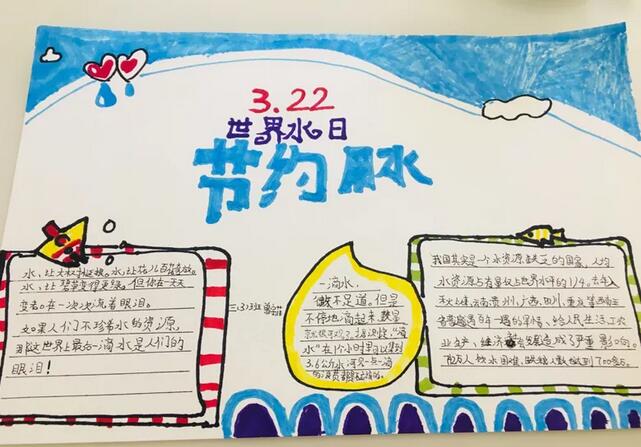 3.22
世界水日
节约用水
水,让大树挺拔。水,让花儿百花齐放。
水,让
变得更绿。但你在一天天
变老。在一次次流着眼泪。
如果人们不珍惜水的资源,
那这世界上最后一滴水是人们的
眼泪!
三(3)班
一滴水,
微不足道。但是
不停地滴起来,数量
就很可观了。据测定,“滴
水”在1个小时里可以集到
3.6公斤水
我国其实是一个水资源缺乏的国家,人均
水资源占有量仅占世界水平的1/4。去年
秋以来,云南,贵州,广西,四川,重庆等西南五
省遭遇百年一遇的旱情,给人民生活,工农
业生产,经济
发展造成了严重影响。
万人饮水困难,